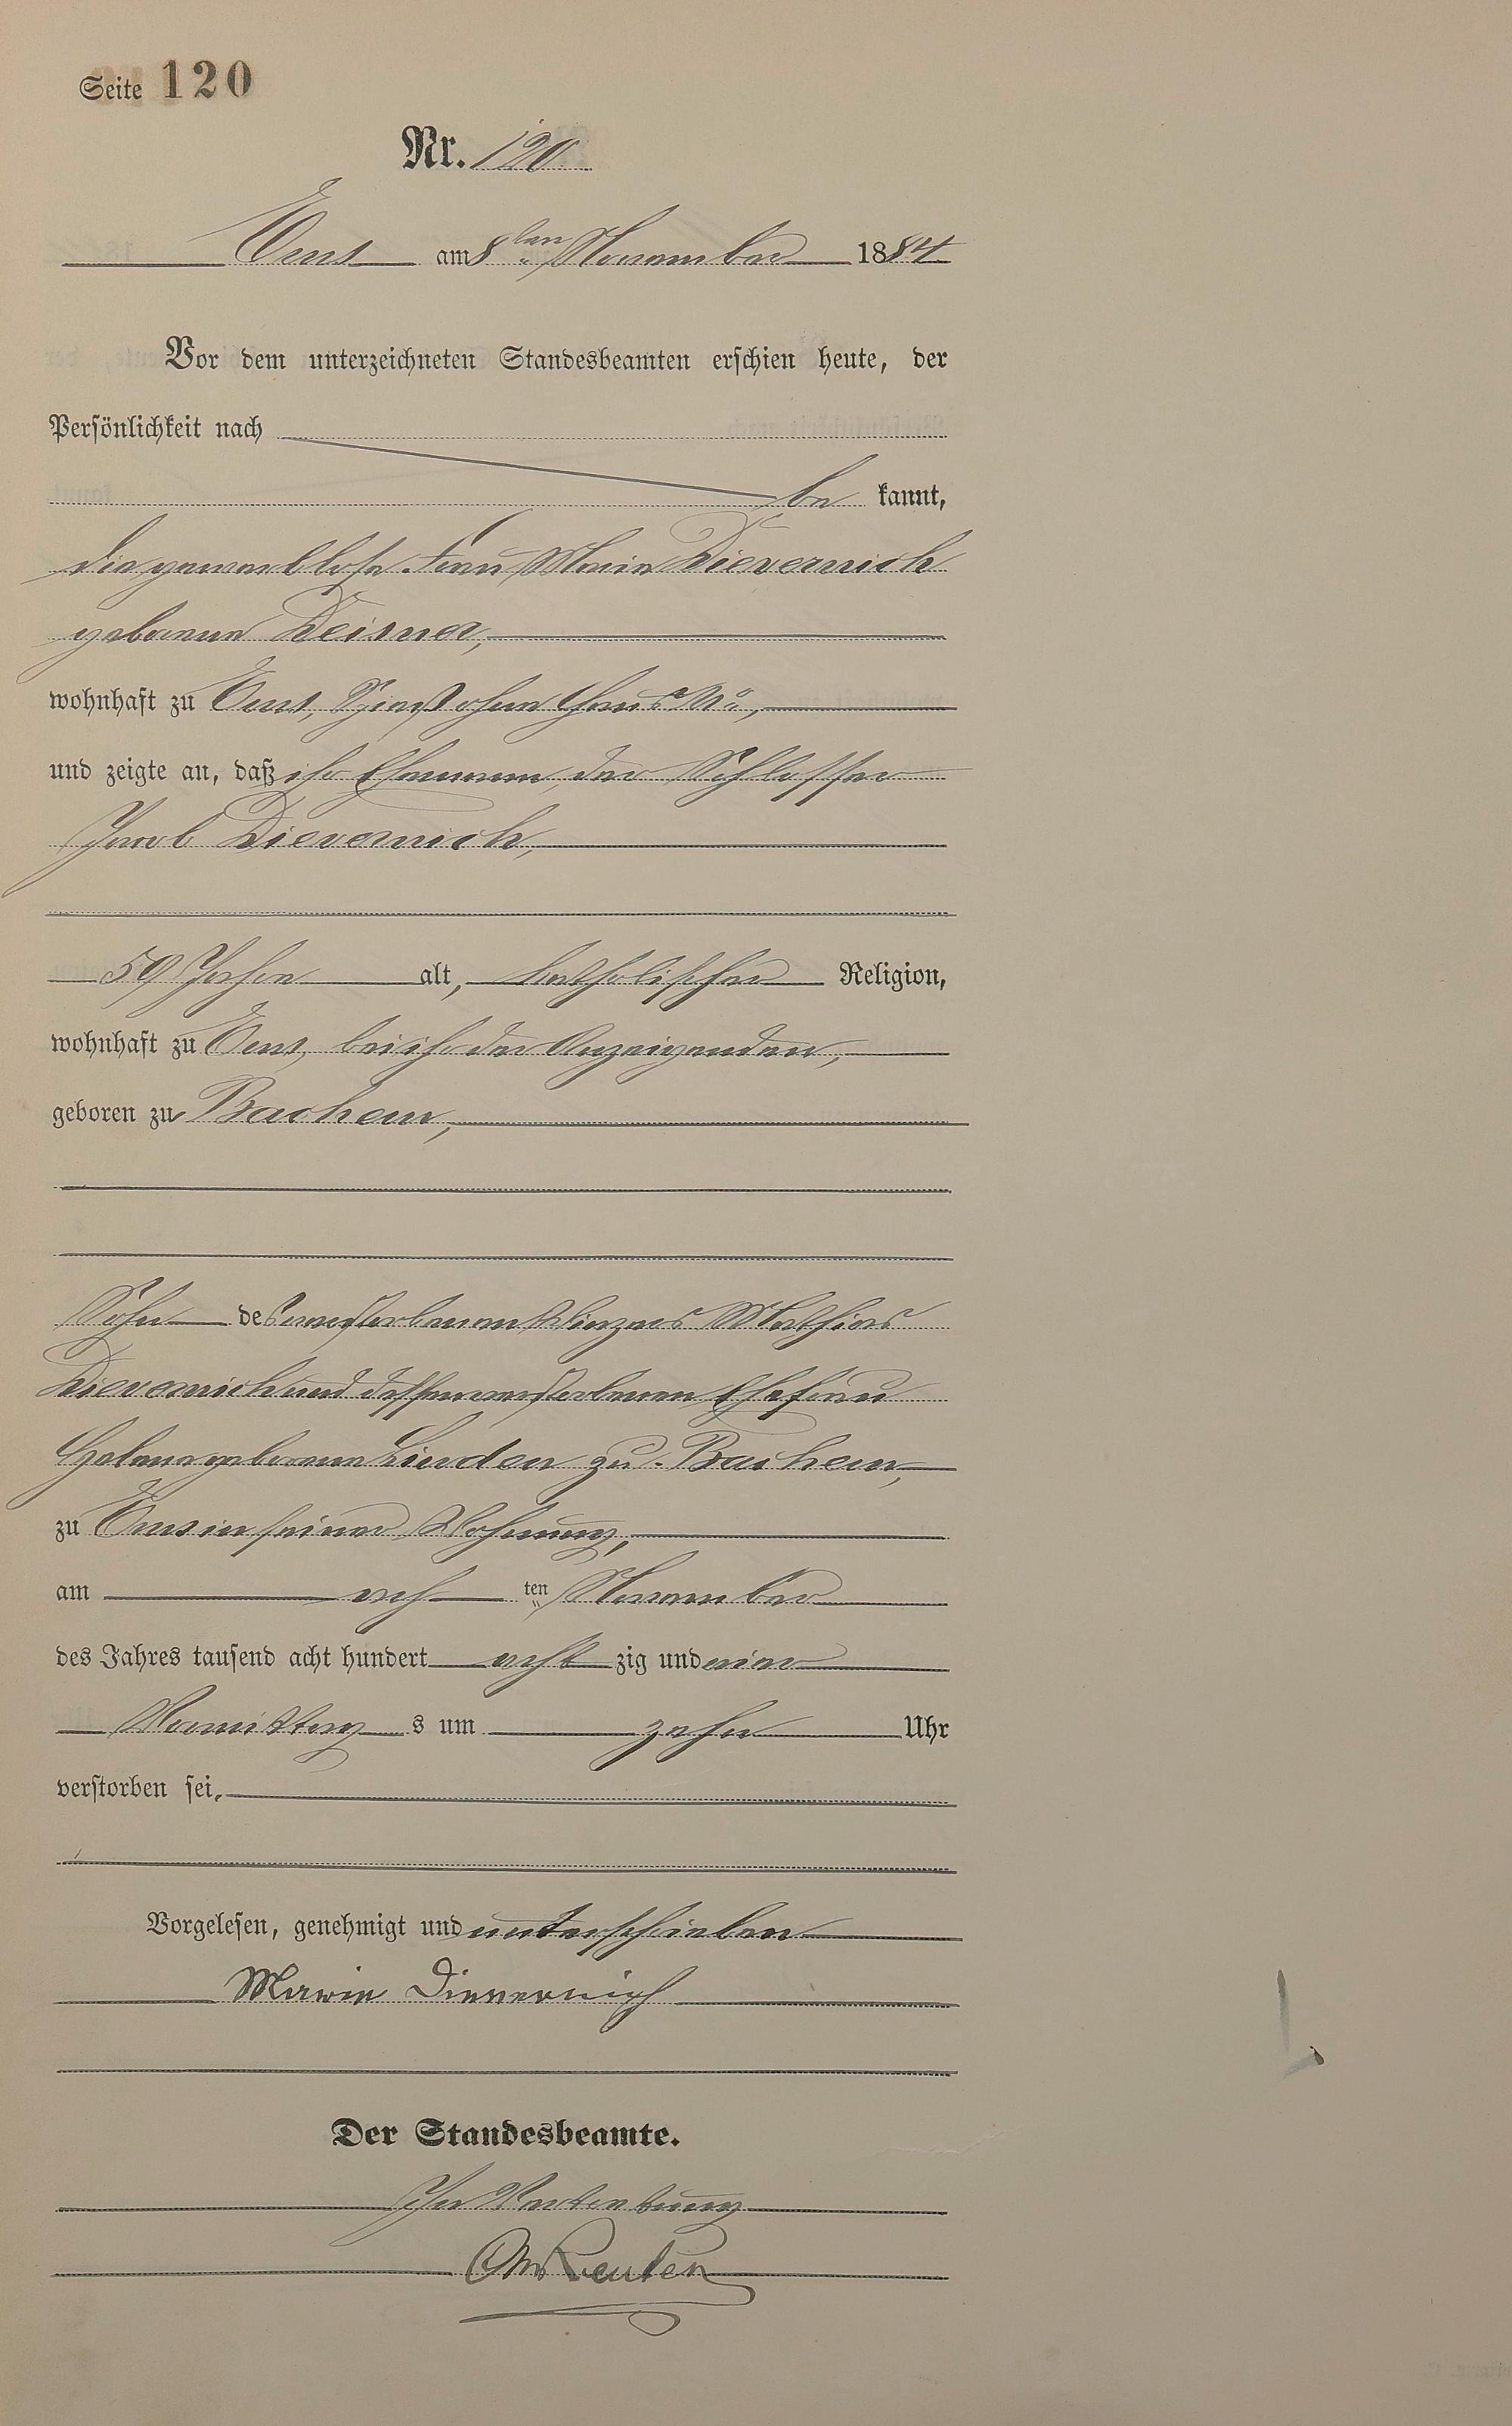 Seite 120
Nr. 120
Ems am 8ten November 1884
Vor dem unterzeichneten Standesbeamten erschien heute, der
Persönlichkeit nach
be kannt,
die gewerblose Frau Maria Dievernich
geborene Deisner,
wohnhaft zu Ems, ohne Haus No,
und zeigte an, daß ihr Ehemann, der Schlosser
Jacob Dievernich,
59 Jahre alt, katholischer Religion,
wohnhaft zu Ems, bei ihr der Anzeigenden,
geboren zu Bachem,
Sohn des verstorbenen Winzers Mathias
Dievernich und dessen verstorbenen Ehefrau
Helena geborene Linden zu Bachem,
zu Ems in seiner Wohnung,
am ach ten November
des Jahres tausend acht hundert acht zig und vier
Vormittag s um zehn Uhr
verstorben sei.
Vorgelesen, genehmigt und unterschrieben
Marie Dievernich
Der Standesbeamte.
In Vertretung
Reuter